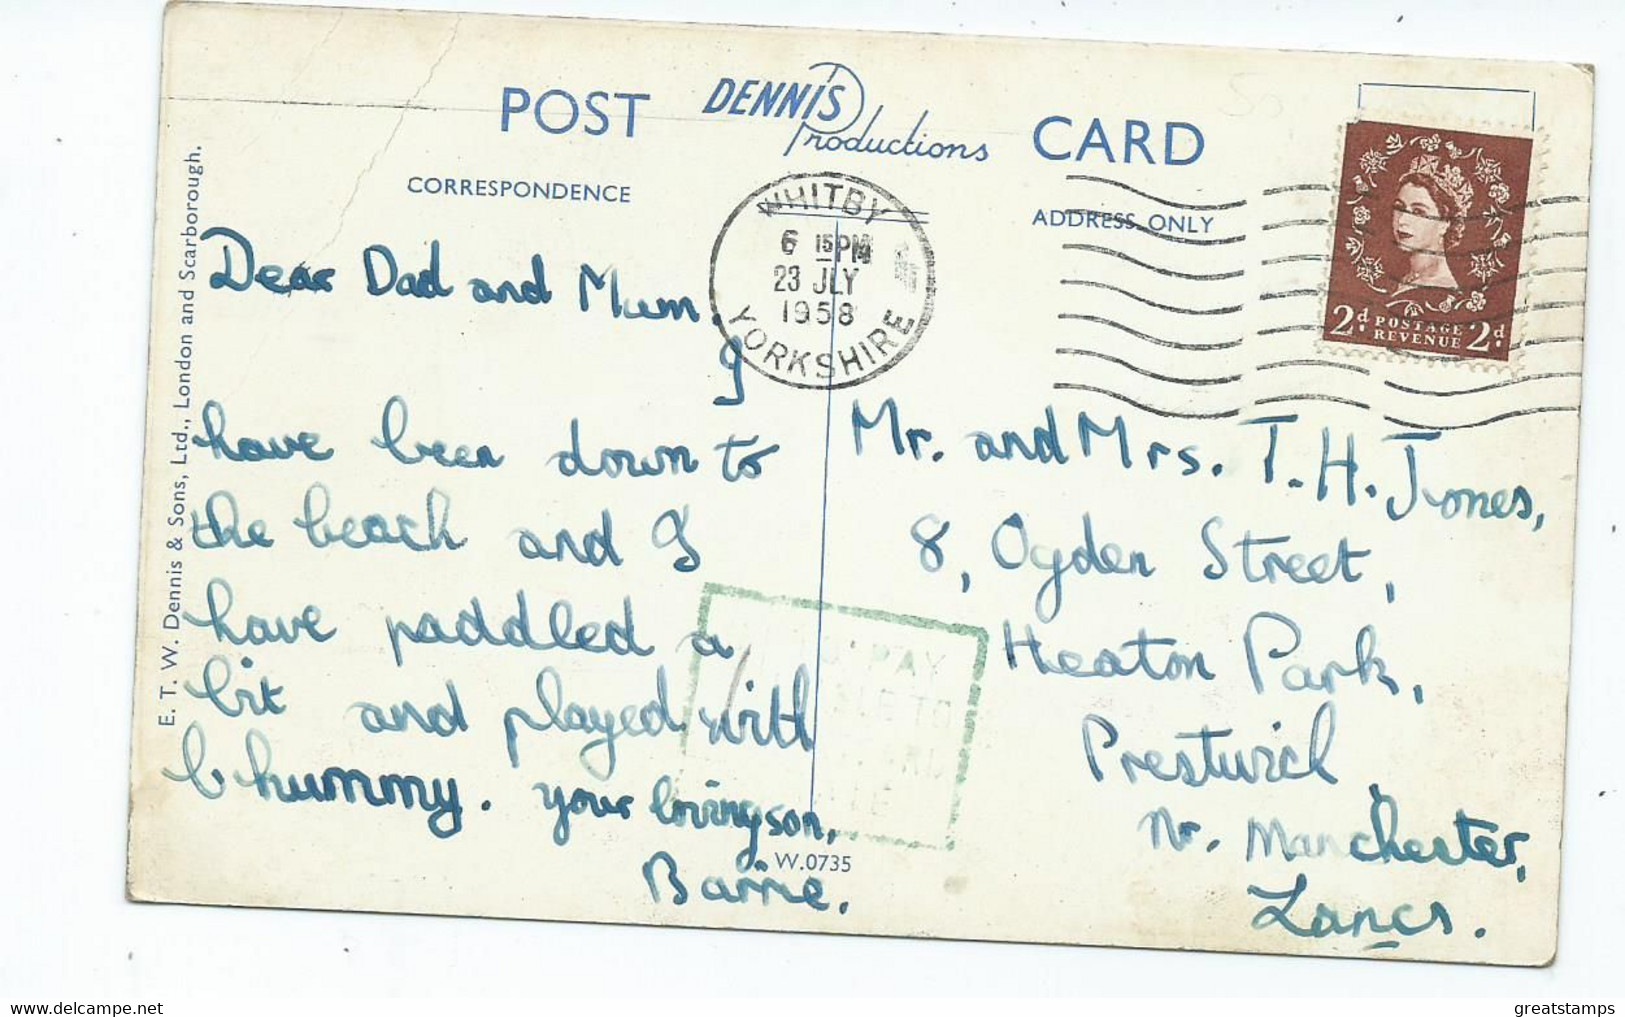 POST DENNIS Productions CARD
CORRESPONDENCE
ADDRESS ONLY
WHITBY
6 15 PM
23 JLY
1958
YORKSHIRE
2d POSTAGE REVENUE 2d
Dear Dad and Mum.
I
have been down to
the beach and I
have paddled a
bit and played with
hummy. your loving son,
Barrie.
Mr. and Mrs. T. H. Jones,
8, Ogden Street,
Heaton Park,
Prestwich
Nr. Manchester,
Lancs.
PAY
TO
W.0735
E. T. W. Dennis & Sons, Ltd., London and Scarborough.
greatstamps